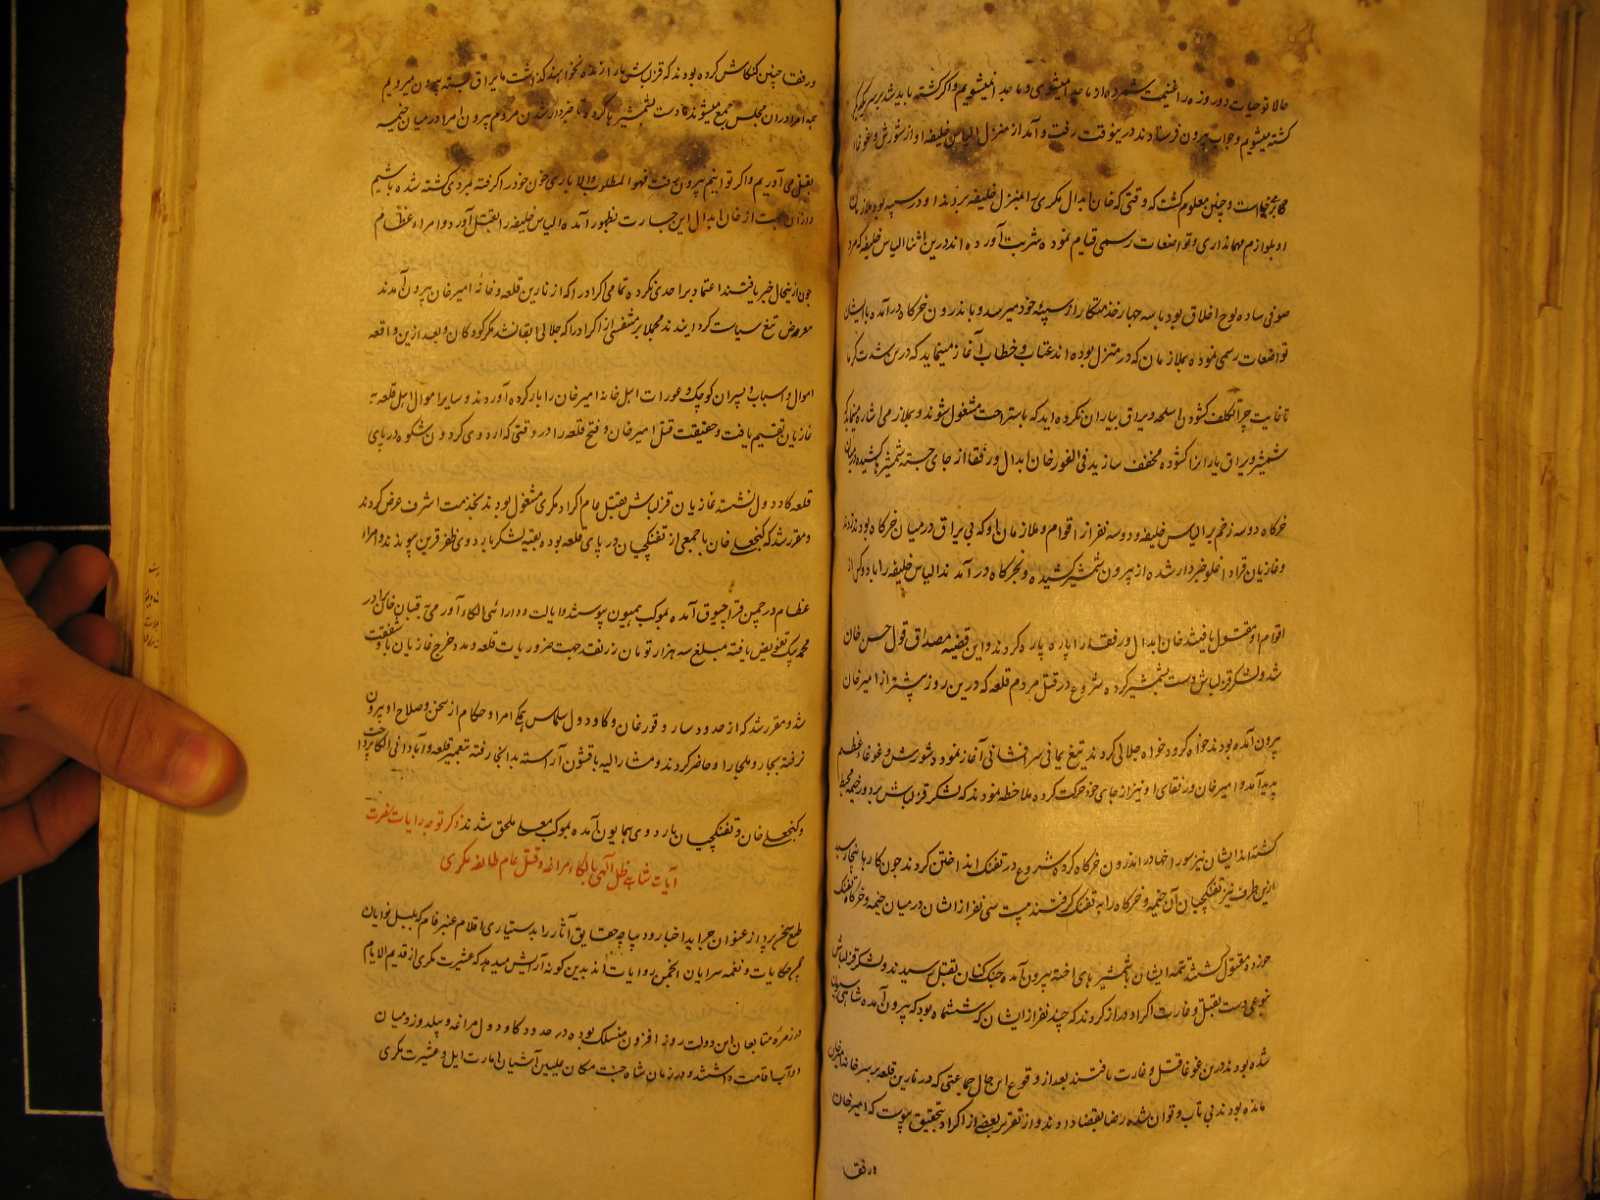 حالا تو حیات دو روزه را غنیمت شمرده از ما جدا میشوی و ما جدا نمیشویم و اگر کشته باید شد بر سر یکدیگر
کشته میشویم و جواب بیرون فرستادند درینوقت رفت و آمد از منزل الیاس خلیفه آواز شورش و غوغا
برخاست و چنین معلوم گشت که وقتی که خان ابدال مکری را بمنزل خلیفه بردند او در سیبه بود ملازمان
او بلوازم مهمانداری و تواضعات رسمی قیام نموده شربت آورده اند درین اثنا الیاس خلیفه که مرد
صوفی ساده لوح اخلاق بود با سه چهار خدمتکار از سیبه خود میرسد و باندرون خرگاه درآمده با ایشان
تواضعات رسمی نموده بملازمان که در منزل بوده اند عتاب و خطاب آغاز مینماید که درین شدت گرما
تا غایت چرا تکلف گشودن اسلحه و یراق بیاران نکرده اید که باستراحت مشغول شوند و بملازمی اشاره مینماید که
شمشیر و یراق یارانرا گشوده مخفف سازید فی الفور خان ابدال و رفقا از جای جسته شمشیرها کشیده در میان
خرگاه دو سه زخم بر الیاس خلیفه و دو سه نفر از اقوام و ملازمان او که بی یراق در میان خرگاه بودند زدند
و غازیان قراداغلو خبردار شده از بیرون شمشیر کشیده بخرگاه درآمدند الیاس خلیفه را با دو کس از
اقوام او مقتول یافتند خان ابدال و رفقا را پاره پاره کردند و این قضیه مصداق قول حسن خان
شد و لشکر قزلباش دست بشمشیر کرده شروع در قتل مردم قلعه که درین روز پیشتر از امیر خان
بیرون آمده بودند خواه کرد و خواه جلالی کردند تیغ یمانی سرافشانی آغاز نمود و شورش و غوغا عظیم
پدید آمد و امیر خان و رفقای او نیز از جای خود حرکت کرده ملاحظه نمودند که لشکر قزلباش بر دور خیمه محیط
گشته اند ایشان نیز سوراخها در اندرون خرگاه کرده شروع در تفنگ انداختن کردند چون کار بدینجا رسید
ازین طرف نیز تفنگچیان آن خیمه و خرگاه را به تفنگ گرفتند بیست سی نفر از ایشان در میان خیمه و خرگاه تفنگ
خورده مقتول گشتند تتمه ایشان با شمشیرهای آخته بیرون آمده جنگ کنان بقتل رسیدند و لشکر قزلباش
نوعی دست بقتل و غارت اکراد دراز کردند که چند نفر از ایشان که شش ماه بود که بیرون آمده شاهی سیون
شده بودند درین غوغا قتل و غارت یافتند بعد از وقوع این حال جماعتی که در نارین قلعه بر سر خانه امیر خان
مانده بودند بی تاب و توان شده رضا بقضا دادند و از تقریر بعضی از اکراد بتحقیق پیوست که امیر خان
و رفقا
و رفقا چنین کنکاش کرده بودند که قزلباش ما را زنده نخواهند گذاشت ما یراق بسته بیرون میرویم
همه امرا در آن مجلس جمع میشوند دست بشمشیرها کرده تا خبردار شدن مردم بیرون امرا در میان خیمه
بقتل می آوریم و اگر توانیم بیرون رفت فهو المطلوب والا باری خون خود را گرفته بمردی کشته شده باشیم
و از آن جهت از خان ابدال این جسارت بظهور آمده الیاس خلیفه را بقتل آورد و امراء عظام
چون ازینحال خبر یافتند اعتماد بر احدی نکرده تمامی اکراد را که از نارین قلعه و خانه امیر خان بیرون آمدند
معروض تیغ سیاست گردانیدند مجملا بر متنفسی از اکراد را که جلالی ابقا نشد مگر کودکان و بعد ازین واقعه
اموال و اسباب و پسران کوچک و عورات اهل خانه امیر خان را بار کرده آوردند و سایر اموال اهل قلعه به
غازیان تقسیم یافت و حقیقت قتل امیر خان و فتح قلعه را در وقتی که اردوی گردون شکوه در پای
قلعه گاودول نشسته غازیان قزلباش بقتل عام اکراد مکری مشغول بودند بخدمت اشرف عرض کردند
و مقرر شد که گنجعلی خان با جمعی از تفنگچیان در پای قلعه بوده بقیه لشکر باردوی ظفر قرین پیوندند و امراء
عظام در چمن قراچبوق آمده بموکب همیون پیوستند و ایالت و دارائی الکاء اورمی بقبان خان برادر
محمد بیک تفویض یافته مبلغ سه هزار تومان زر نقد جهت ضروریات قلعه و مدد خرج غازیان باو شفقت
شد و مقرر شد که از حدود سارو قورغان و گاودول سلماس همگی امرا و حکام از سخن و صلاح او بیرون
نرفته بجار و ملجار او حاضر گردند و مشارالیه با قشون آراسته بدانجا رفته بتعمیر قلعه و آبادانی الکا پرداخت
و گنجعلی خان و تفنگچیان باردوی همایون آمده بموکب معلی ملحق شدند ذکر توجه رایات نصرت
آیات شاهی ظل آلهی بالکاء مراغه و قتل عام طائفه مکری
طبع سخن پرداز عنوان جراید اخبار و دیباچه حقایق آثار را بدستیاری اقلام عنبرفام که بلبل نوایان
چمن حکایات و نغمه سرایان انجمن روایات اند بدین گونه آرایش میدهد که عشیرت مکری از قدیم الایام
در زمره متابعان این دولت روز افزون منسلک بوده در حدود گاودول مراغه و پیلدوز و میان
دوآب اقامت داشتند و در زمان شاه جنت مکان علیین آشیان امارت ایل و عشیرت مکری